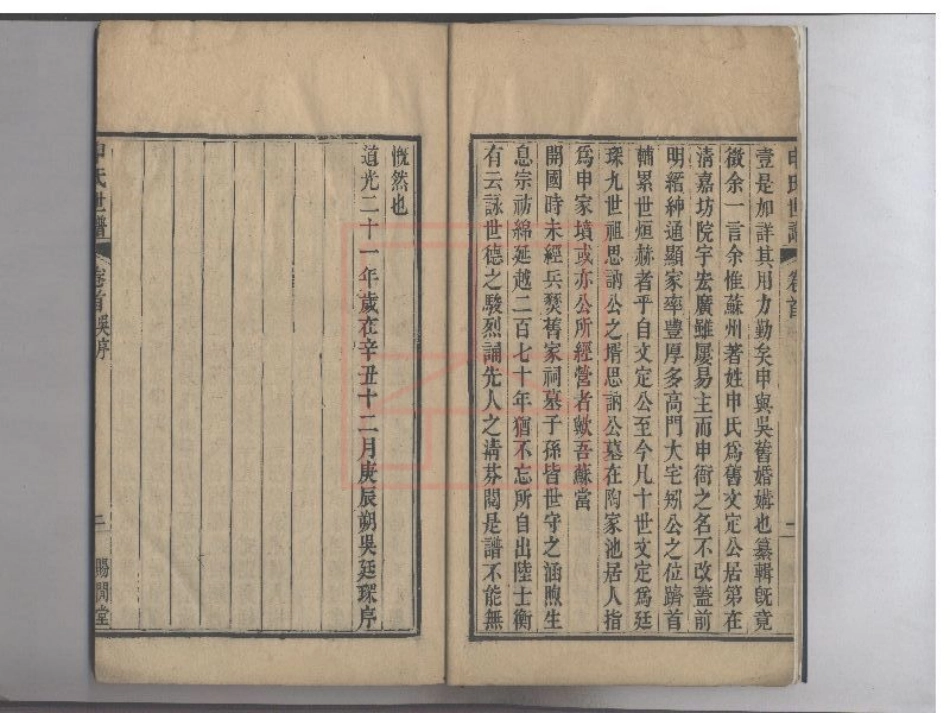 申氏世譜 卷首 二
壹是加詳其用力勤矣申與吳舊婚媾也纂輯既竟
徵余一言余惟蘇州著姓申氏爲舊文定公居第在
清嘉坊院宇宏廣雖屢易主而申衙之名不改蓋前
明縉紳通顯家率豐厚多高門大宅矧公之位躋首
輔累世烜赫者乎自文定公至今凡十世文定爲廷
琛九世祖思訥公之壻思訥公墓在陶家池居人指
爲申家墳或亦公所經營者歟吾蘇當
開國時未經兵燹舊家祠墓子孫皆世守之涵煦生
息宗祊綿延越二百七十年猶不忘所自出陸士衡
有云詠世德之駿烈誦先人之清芬閱是譜不能無
慨然也
道光二十一年歲在辛丑十二月庚辰朔吳廷琛序
申氏世譜 卷首吳序 二 賜閒堂